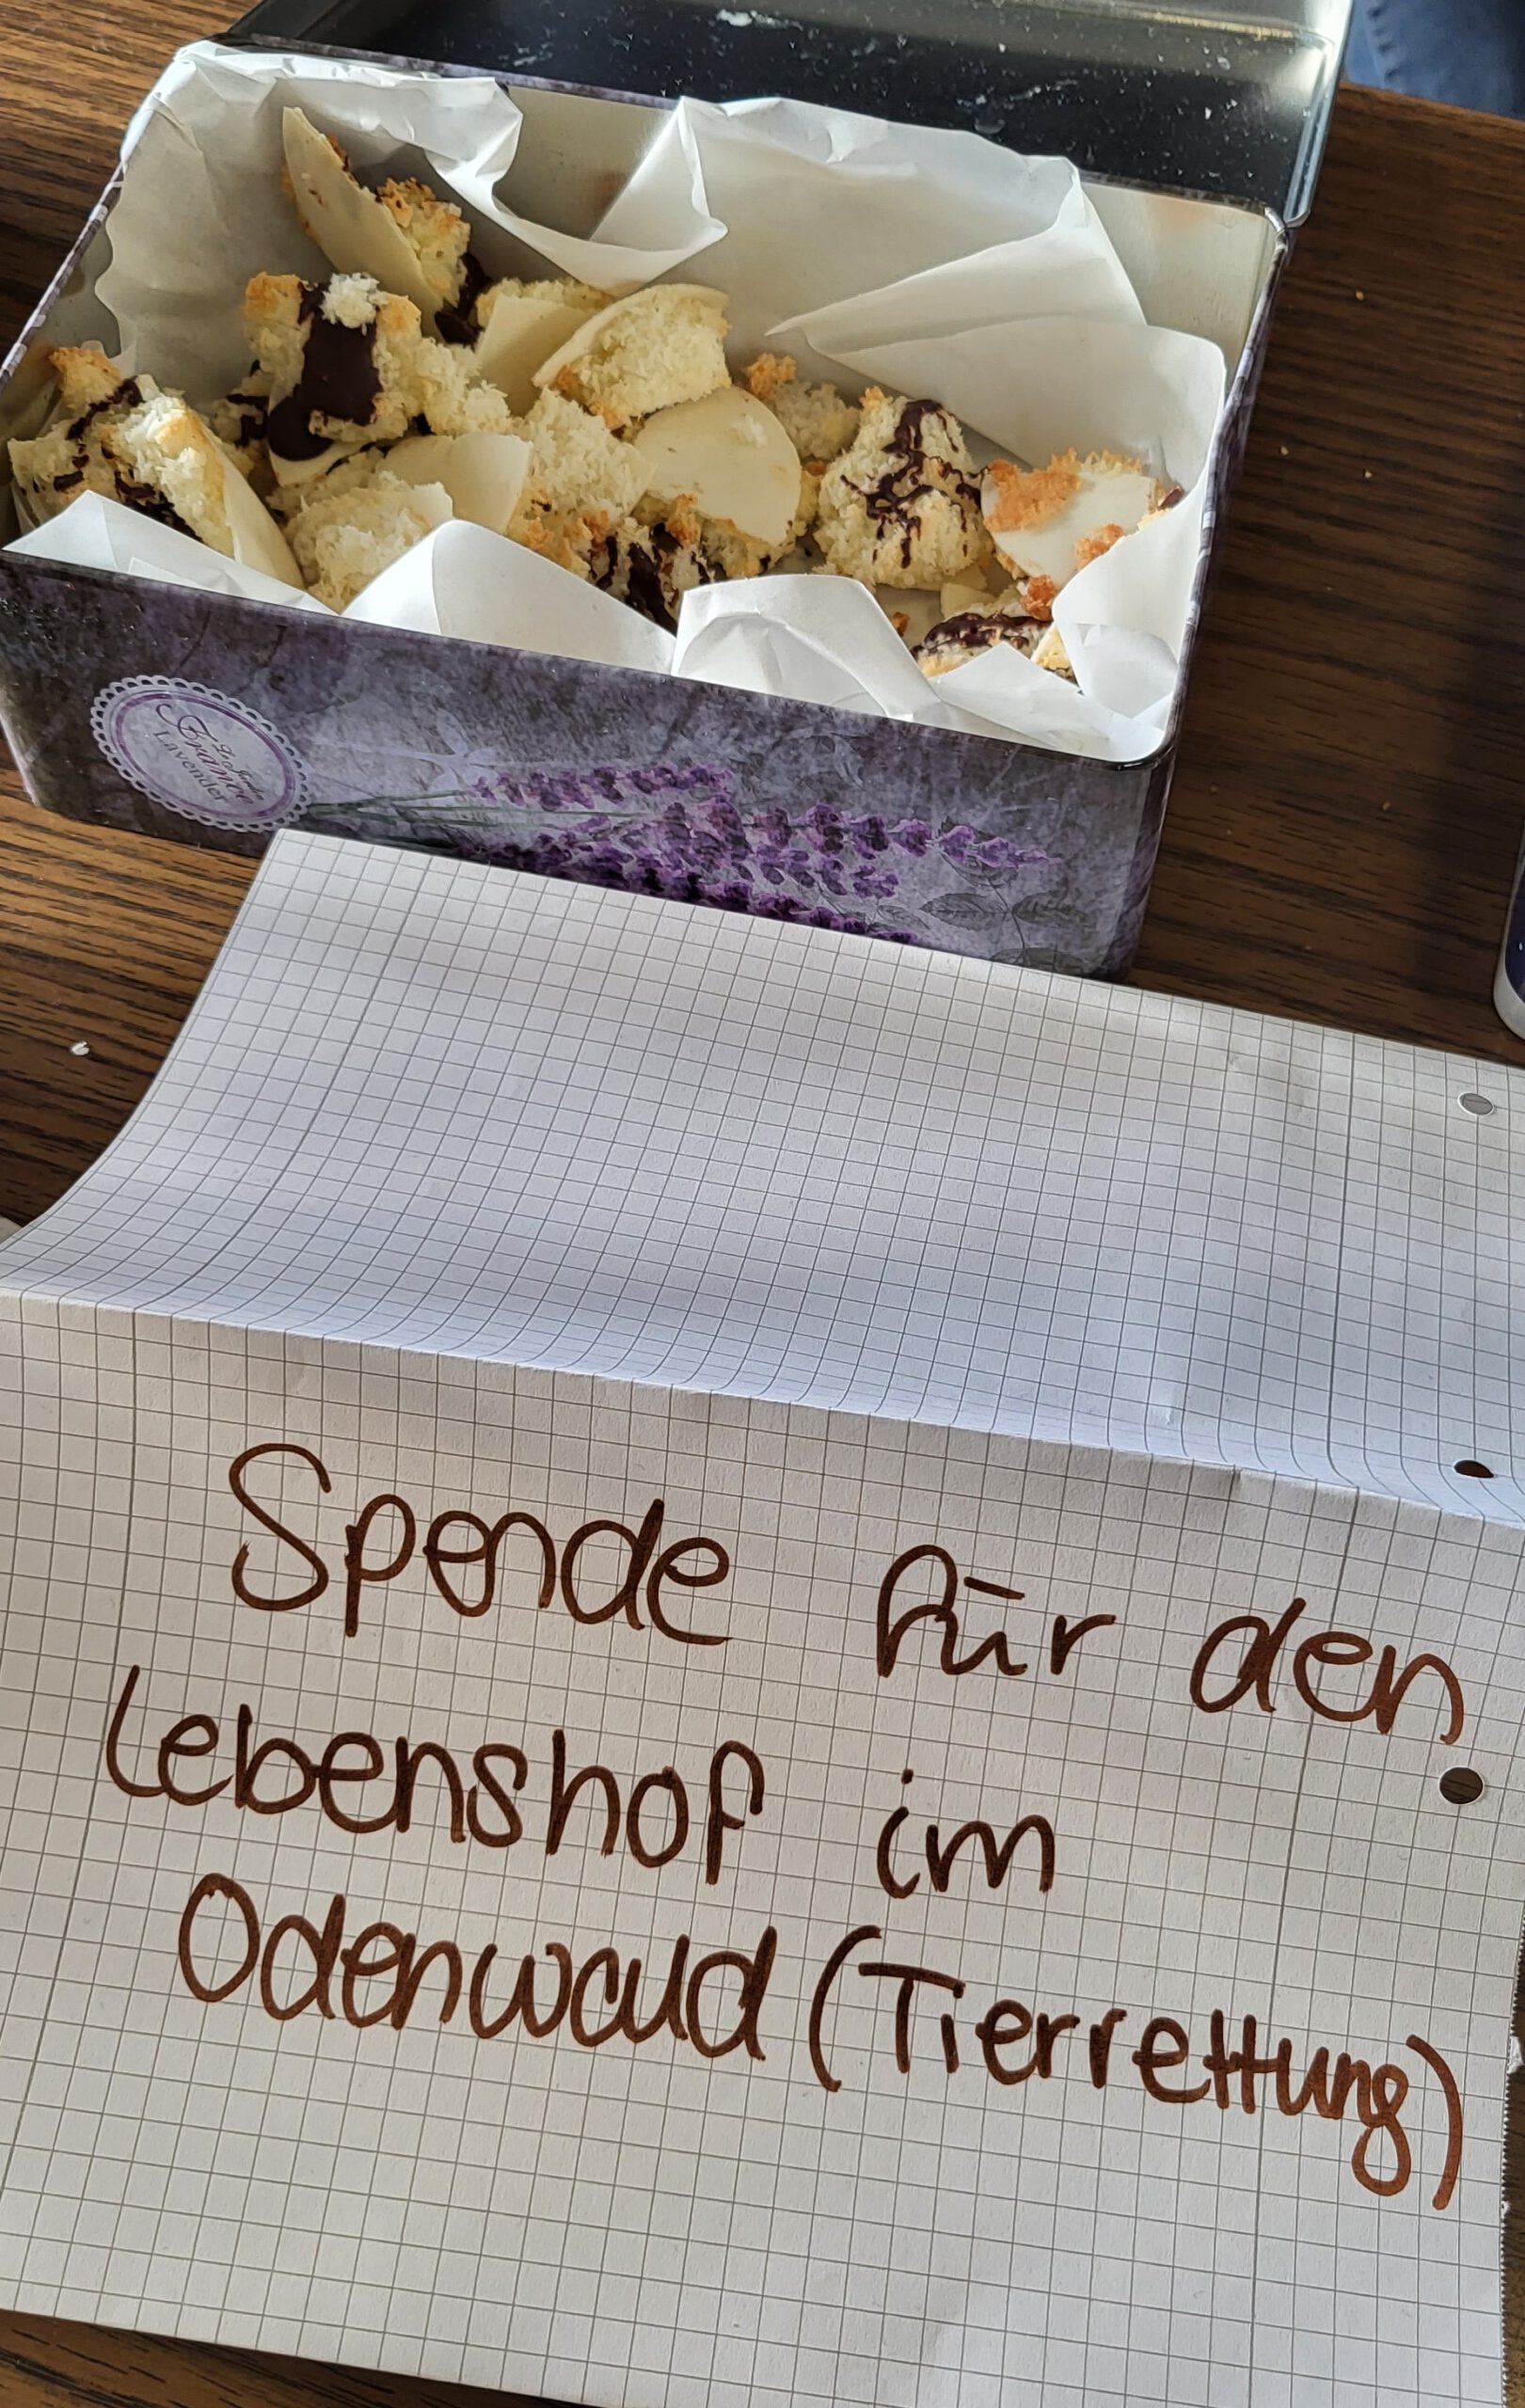 France
Lavender
Spende für den
Lebenshof im
Odenwald (Tierrettung)